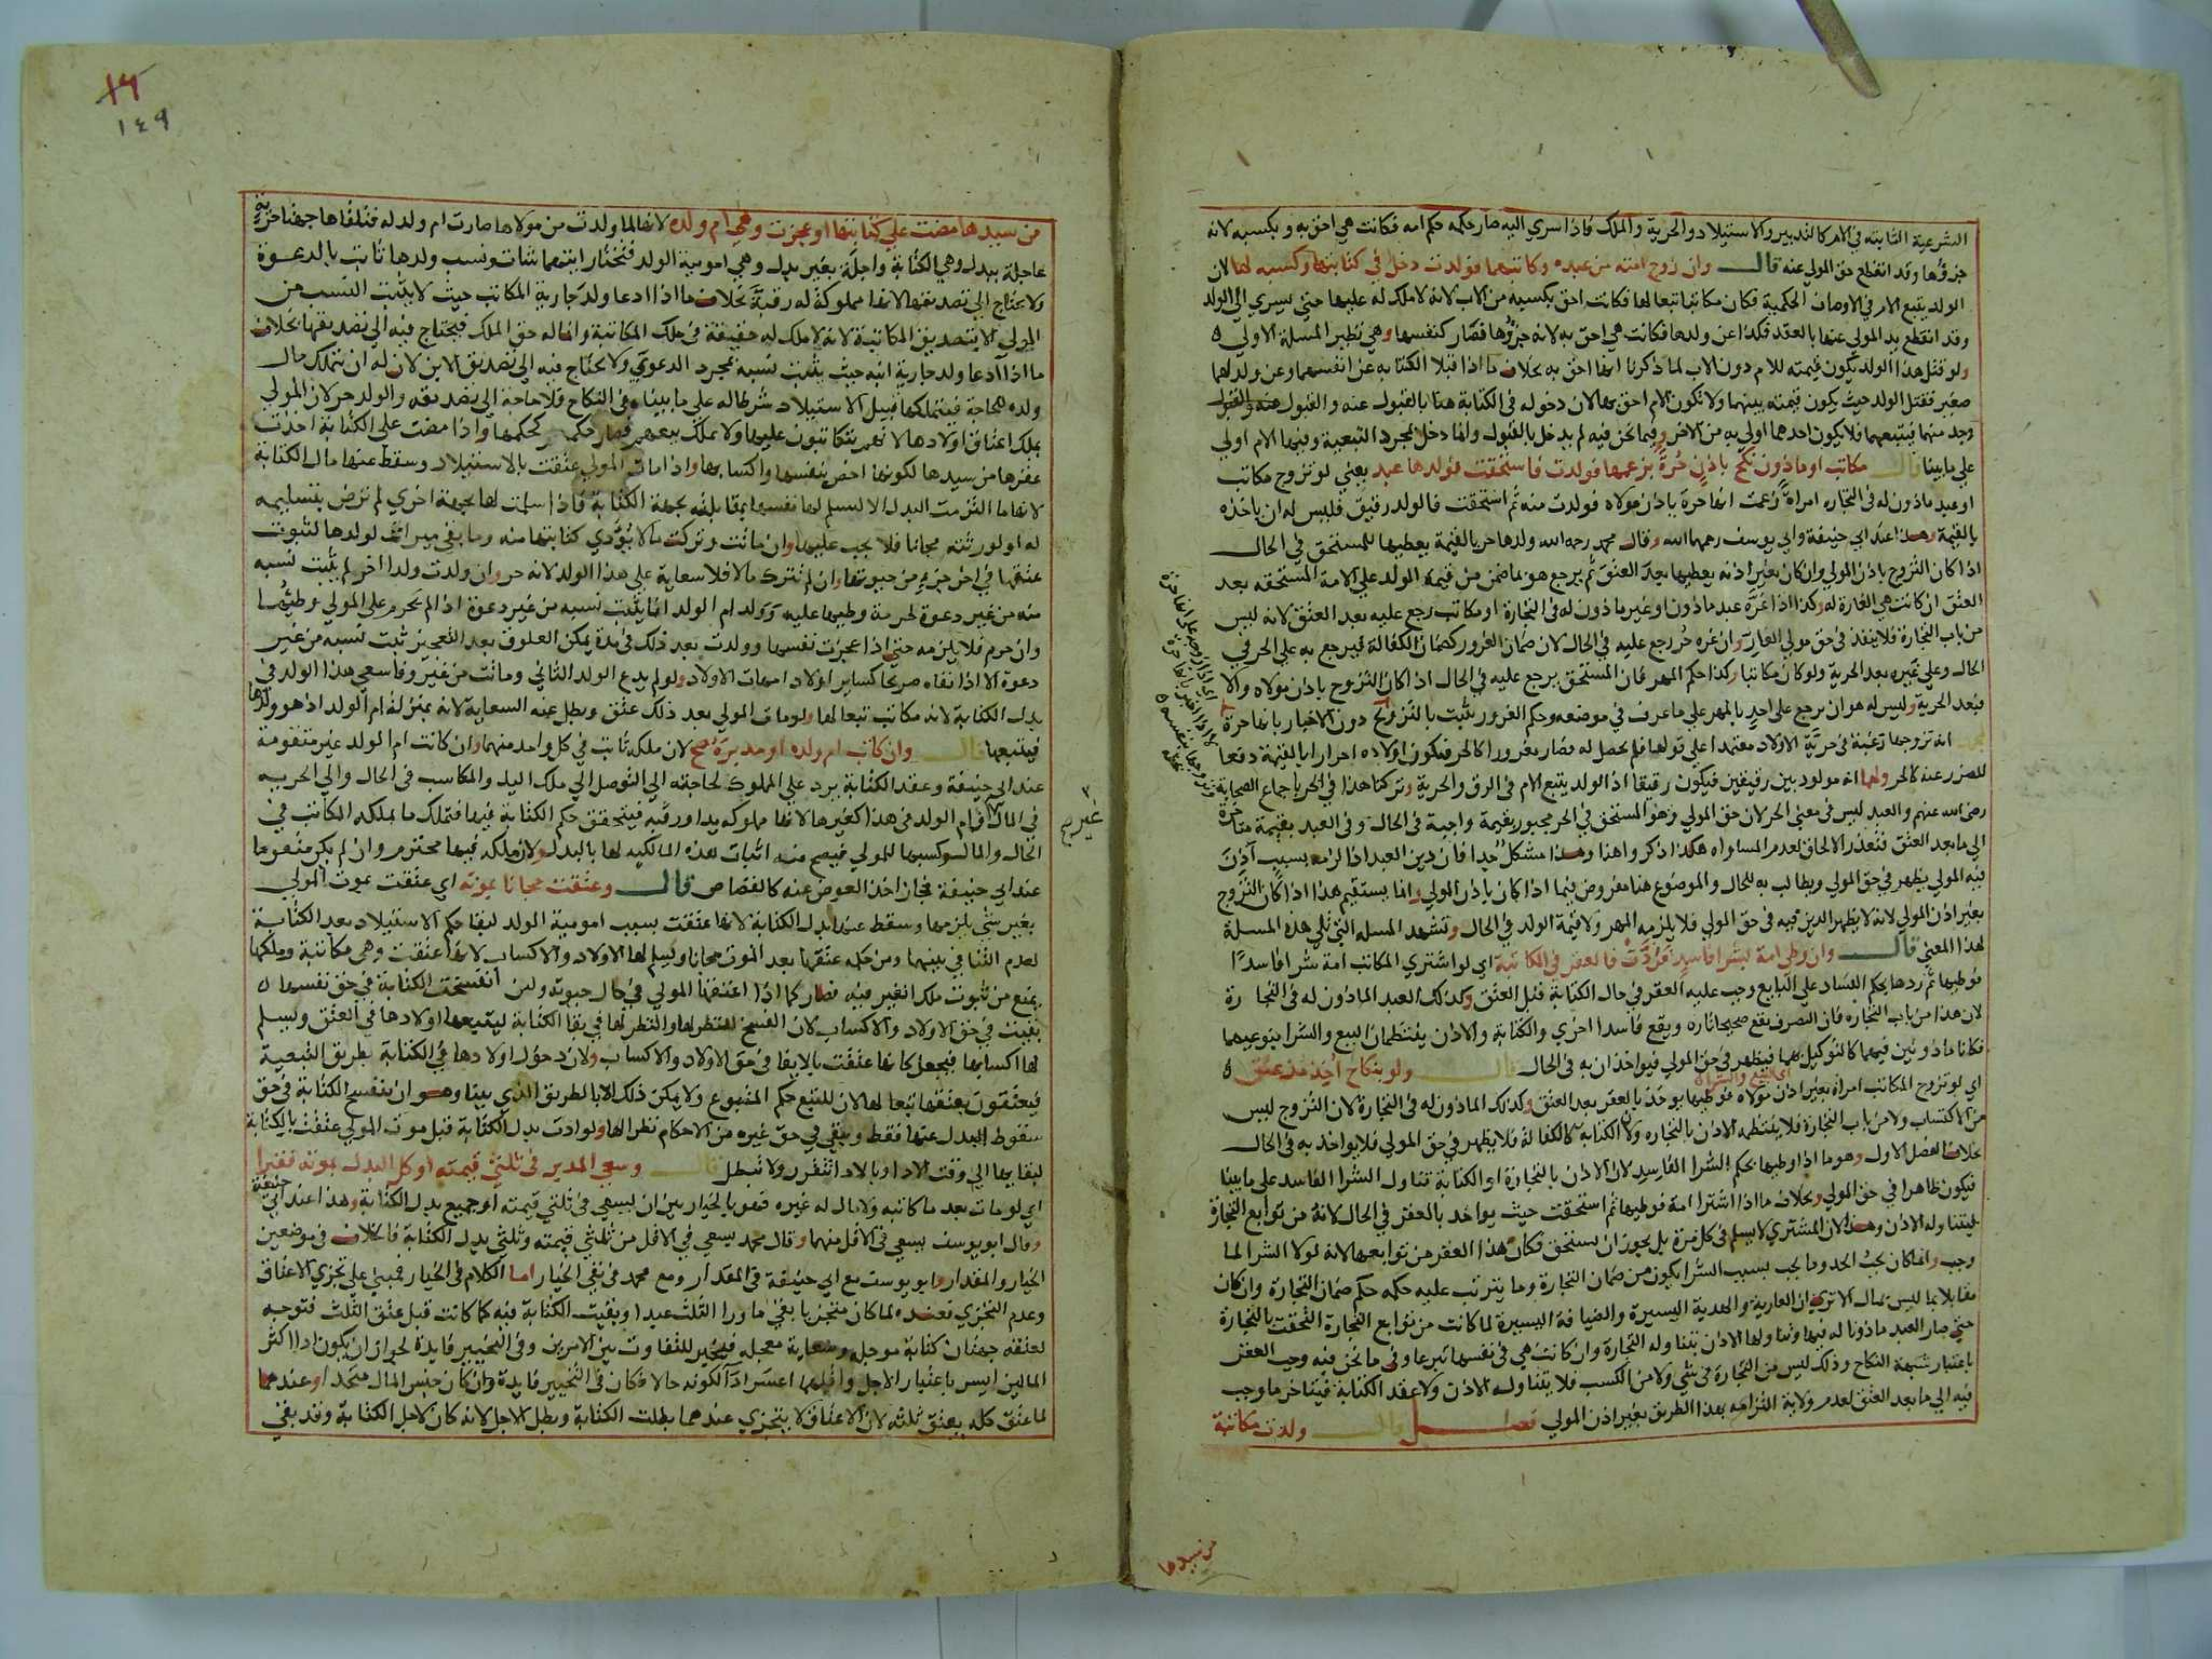 الشرعية الثابتة في الام كالتدبير والاستيلاد والحرية والملك فاذا سري اليه صار حكمه حكم امه فكانت هي احق به وبكسبه لانه
جزؤها وقد انقطع حق المولي عنه قال وان زوج امته من عبده وكاتبهما فولدت دخل في كتابتها وكسبه لها لان
الولد يتبع الام في الاوصاف الحكمية فكان مكاتبا تبعا لها فكانت احق بكسبه من الاب لانه لا ملك له عليها حتي يسري الي الولد
وقد انقطع يد المولي عنها بالعقد فكذا عن ولدها فكانت هي احق به لانه جزؤها فصار كنفسها وهي نظير المسلة الاولي
ولو قتل هذا الولد تكون قيمته للام دون الاب لما ذكرنا انها احق به بخلاف ما اذا قبلا الكتابه عن انفسهما وعن ولد لهما
صغير فقتل الولد حيث يكون قيمته بينهما ولا تكون الام احق بها لان دخوله في الكتابة هنا بالقبول عنه والقبول
وجد منهما فيتبعهما فلا يكون احدهما اولي به من الاخر وفيما نحن فيه لم يدخل بالقبول وانما دخل بمجرد التبعية وفيها الام اولي
علي ما بينا قال مكاتب او ماذون نكح باذن حرة بزعمها فولدت فاستحقت فولدها عبد يعني لو تزوج مكاتب
او عبد ماذون له في التجاره امراة زعمت انها حرة باذن مولاه فولدت منه ثم استحقت فالولد رقيق فليس له ان ياخذه
بالقيمة وهذا عند ابي حنيفة وابي يوسف رحمهما الله وقال محمد رحمه الله ولدها حر بالقيمة يعطيها للمستحق في الحال
اذا كان التزوج باذن المولي وان كان بغير اذنه يعطيها بعد العتق ثم يرجع هو بما ضمن من قيمة الولد علي الامة المستحقه بعد
العتق ان كانت هي الغارة له وكذا اذا غره عبد ماذون او غير ماذون له في التجارة او مكاتب رجع عليه بعد العتق لانه ليس
من باب التجارة فلا ينفذ في حق مولي الغار وان غره حر رجع عليه في الحال لان ضمان الغرور كضمان الكفالة فيرجع به علي الحر في
الحال وعلي غيره بعد الحرية ولو كان مكاتبا وكذا حكم المهر فان المستحق يرجع عليه في الحال اذا كان التزوج باذن مولاه والا
فبعد الحرية وليس له هو ان يرجع علي احد بالمهر علي ما عرف في موضعه وحكم الغرور يثبت بالتزوج دون الاخبار بانها حرة
انه تزوجها رغبة في حرية الاولاد معتمدا علي قولها فلم يحصل له فصار مغرورا كالحر فيكون اولاده احرارا بالقيمة دفعا
للضرر عنه كالحر ولهما انه مولود بين رقيقين فيكون رقيقا اذ الولد يتبع الام في الرق والحرية وتركنا هذا في الحر باجماع الصحابة
رضي الله عنهم والعبد ليس في معني الحر لان حق المولي وهو المستحق في الحر مجبور بقيمة واجبة في الحال وفي العبد بقيمة متاخرة
الي ما بعد العتق فتعذر الالحاق لعدم المساواه هكذا ذكروا هذا وهذا مشكل جدا فان دين العبد اذا لزمه بسبب آذن
فيه المولي يظهر في حق المولي ويطالب به للحال والموضوع هنا مفروض فيما اذا كان باذن المولي وانما يستقيم هذا اذا كان التزوج
بغير اذن المولي لانه لا يظهر الدين فيه في حق المولي فلا يلزمه المهر ولا قيمة الولد في الحال وتشهد المسله التي تلي هذه المسلة
لهذا المعني قال وان وطي امة بشرا فاسد فردت فالعقر في الكاتبة اي لو اشتري المكاتب امة شرا فاسدا
فوطيها ثم ردها بحكم الفساد علي البايع وجب عليه العقر في حال الكتابة قبل العتق وكذلك العبد الماذون له في التجارة
لان هذا من باب التجاره فان التصرف يقع صحيحا تاره ويقع فاسدا اخري والكتابة والاذن ينتظمان البيع والشرا بنوعيهما
فكانا ماذونين فيهما كالتوكيل بهما فيظهر في حق المولي فيواخذان به في الحال قال ولو بنكاح اخذ مذ عتق
اي البيع والشراء
اي لو تزوج المكاتب امراة بغير اذن مولاه فوطيها يوخذ بالعقر بعد العتق وكذلك الماذون له في التجارة لان التزوج ليس
من الاكتساب ولا من باب التجارة فلا ينتظمه الاذن بالتجاره ولا الكتابة كالكفالة فلا يظهر في حق المولي فلا يواخذ به في الحال
بخلاف الفصل الاول وهو ما اذا وطيها بحكم الشرا الفاسد لان الاذن بالتجارة او الكتابة تتناول الشرا الفاسد علي ما بينا
فيكون ظاهرا في حق المولي وبخلاف ما اذا اشترا امة فوطيها ثم استحقت حيث يواخذ بالعقر في الحال لانه من توابع التجارة
ليتناوله الاذن وهذا لان المشتري لا يسلم في كل مرة بل يجوز ان يستحق فكان هذا العقر من توابعها لانه لولا الشرا لما
وجب وانما كان يجب الحد وما يجب بسبب الشرا يكون من ضمان التجارة وما يترتب عليه حكمه حكم ضمان التجارة وان كان
مقابلا بما ليس بمال الا تري ان العارية والهدية اليسيرة والضيافة اليسيرة لما كانت من توابع التجارة التحقت بالتجارة
حتي صار العبد ماذونا له فيها وتناولها الاذن بتناوله التجارة وان كانت هي في نفسها تبرعا وفي ما نحن فيه وجب العقر
باعتبار شبهة النكاح وذلك ليس من التجارة في شي ولا من الكسب فلا يتناوله الاذن ولا عقد الكتابة فيتاخر ما وجب
فيه الي ما بعد العتق لعدم ولاية التزامه بهذا الطريق بغير اذن المولي فصل قال ولدت مكاتبة
من سيدها
١٤٩
من سيدها مضت علي كتابتها او عجزت وهي ام ولده لانها لما ولدت من مولاها صارت ام ولد له فتلقاها جهتا حرية
عاجلة ببدل وهي الكتابة واجلة بغير بدل وهي امومية الولد فتختار ايتهما شات ونسب ولدها ثابت بالدعوة
ولا يحتاج الي تصديقها لانها مملوكة له رقبة بخلاف ما اذا ادعا ولد جارية المكاتب حيث لا يثبت النسب من
المولي الا بتصديق المكاتبة لانه لا ملك له حقيقة في ملك المكاتبة وانما له حق الملك فيحتاج فيه الي تصديقها بخلاف
ما اذا ادعا ولد جارية ابنه حيث يثبت نسبه بمجرد الدعوي ولا يحتاج فيه الي تصديق الابن لان له ان يتملك مال
ولده للحاجة فيتملكها قبيل الاستيلاد شرطا له علي ما بينا في النكاح فلا حاجة الي تصديقه والولد حر لان المولي
يملك اعتاق اولادها لانهم يتكاتبون عليها ولا يملك بيعهم فصار حكمهم كحكمها واذا مضت علي الكتابة اخذت
عقرها من سيدها لكونها اخص بنفسها واكتسابها واذا مات المولي عتقت بالاستيلاد وسقط عنها مال الكتابة
لانها ما التزمت البدل الا لتسلم لها نفسها بمقابلته بجهة الكتابة فاذا سلمت لها بجهة اخري لم ترض بتسليمه
له او لورثته مجانا فلا يجب عليها وان ماتت وتركت مالا يؤدي كتابتها منه وما بقي ميراث لولدها لثبوت
عتقها في اخر جزء من حيوتها وان لم تترك مالا فلا سعاية علي هذا الولد لانه حر وان ولدت ولدا اخر لم يثبت نسبه
منه من غير دعوة لحرمة وطيها عليه وولد ام الولد انما يثبت نسبه من غير دعوة اذا لم يحرم علي المولي وطيها
وان حرم فلا يلزمه حتي اذا عجزت نفسها وولدت بعد ذلك في مدة يمكن العلوق بعد التعجيز ثبت نسبه من غير
دعوة الا اذا نفاه صريحا كساير اولاد امهات الاولاد ولو لم يدع الولد الثاني وماتت من غير وفا سعي هذا الولد في
بدل الكتابة لانه مكاتب تبعا لها ولو مات المولي بعد ذلك عتق وبطل عنه السعاية لانه بمنزلة ام الولد اذ هو ولدها
فيتبعها قال وان كاتب ام ولده او مدبرة صح لان ملكه ثابت في كل واحد منهما وان كانت ام الولد غير متقومة
عند ابي حنيفة وعقد الكتابة يرد علي المملوك لحاجته الي التوصل الي ملك اليد والمكاسب في الحال والي الحرية
في المال وام الولد في هذا كغيرها لانها مملوكه يدا ورقبه فيتحقق حكم الكتابة فيها فتملك ما يملكه المكاتب في
الحال والمال وكسبها للمولي فيصح منه اثبات هذه المالكيه لها بالبدل ولان ملكه فيها محترم وان لم يكن متقوما
عند ابي حنيفة فجاز اخذ العوض عنه كالقصاص قال وعتقت مجانا بموته اي عتقت بموت المولي
بغير شي يلزمها وسقط عنها بدل الكتابة لانها عتقت بسبب امومية الولد لبقا حكم الاستيلاد بعد الكتابة
لعدم التنافي بينهما ومن حكمه عتقها بعد الموت مجانا وتسلم لها الاولاد والاكساب لانها عتقت وهي مكاتبة وملكها
يمنع من ثبوت ملك الغير فيه فصار كما اذا اعتقها المولي في حال حيوته ولين انفسخت الكتابة في حق نفسها
بقيت في حق الاولاد والاكساب لان الفسخ لنظرها والنظر لها في بقا الكتابة ليتبعها اولادها في العتق وتسلم
لها اكسابها فيجعل كانها عتقت بالايفا في حق الاولاد والاكساب ولان دخول اولادها في الكتابة بطريق التبعية
فيعتقون بعتقها تبعا لها لان للتبع حكم المتبوع ولا يمكن ذلك الا بالطريق الذي بينا وهو ان تنفسخ الكتابة في حق
سقوط البدل عنها فقط وتبقي في حق غيره من الاحكام نظرا لها ولو ادت بدل الكتابة قبل موت المولي عتقت بالكتابة
لبقايها الي وقت الادا وبالاداء تتقرر ولا تبطل قال وسعي المدبر في ثلثي قيمته او كل البدل بموته فقيرا
اي لو مات بعد ما كاتبه ولا مال له غيره فهو بالخيار بين ان يسعي في ثلثي قيمته او جميع بدل الكتابة وهذا عند ابي حنيفة
وقال ابو يوسف يسعي في الاقل منهما وقال محمد يسعي في الاقل من ثلثي قيمته وثلثي بدل الكتابة فالخلاف في موضعين
الخيار والمقدار وابو يوسف مع ابي حنيفة في المقدار ومع محمد في نفي الخيار اما الكلام في الخيار فمبني علي تجزي الاعتاق
وعدم التجزي فعنده لما كان متجزيا بقي ما ورا الثلث عبدا وبقيت الكتابة فيه كما كانت قبل عتق الثلث فتوجه
لعتقه جهتان كتابة موجله وسعاية معجله فيخير للتفاوت بين الامرين وفي التخيير فايدة لجواز ان يكون ادا اكثر
المالين ايسر باعتبار الاجل واقلهما اعسر ادا لكونه حالا فكان في التخيير فايدة وان كان جنس المال متحدا وعندهما
لما عتق كله بعتق ثلثه لان الاعتاق لا يتجزي عندهما بطلت الكتابة وبطل الاجل لانه كان لاجل الكتابة وقد بقي